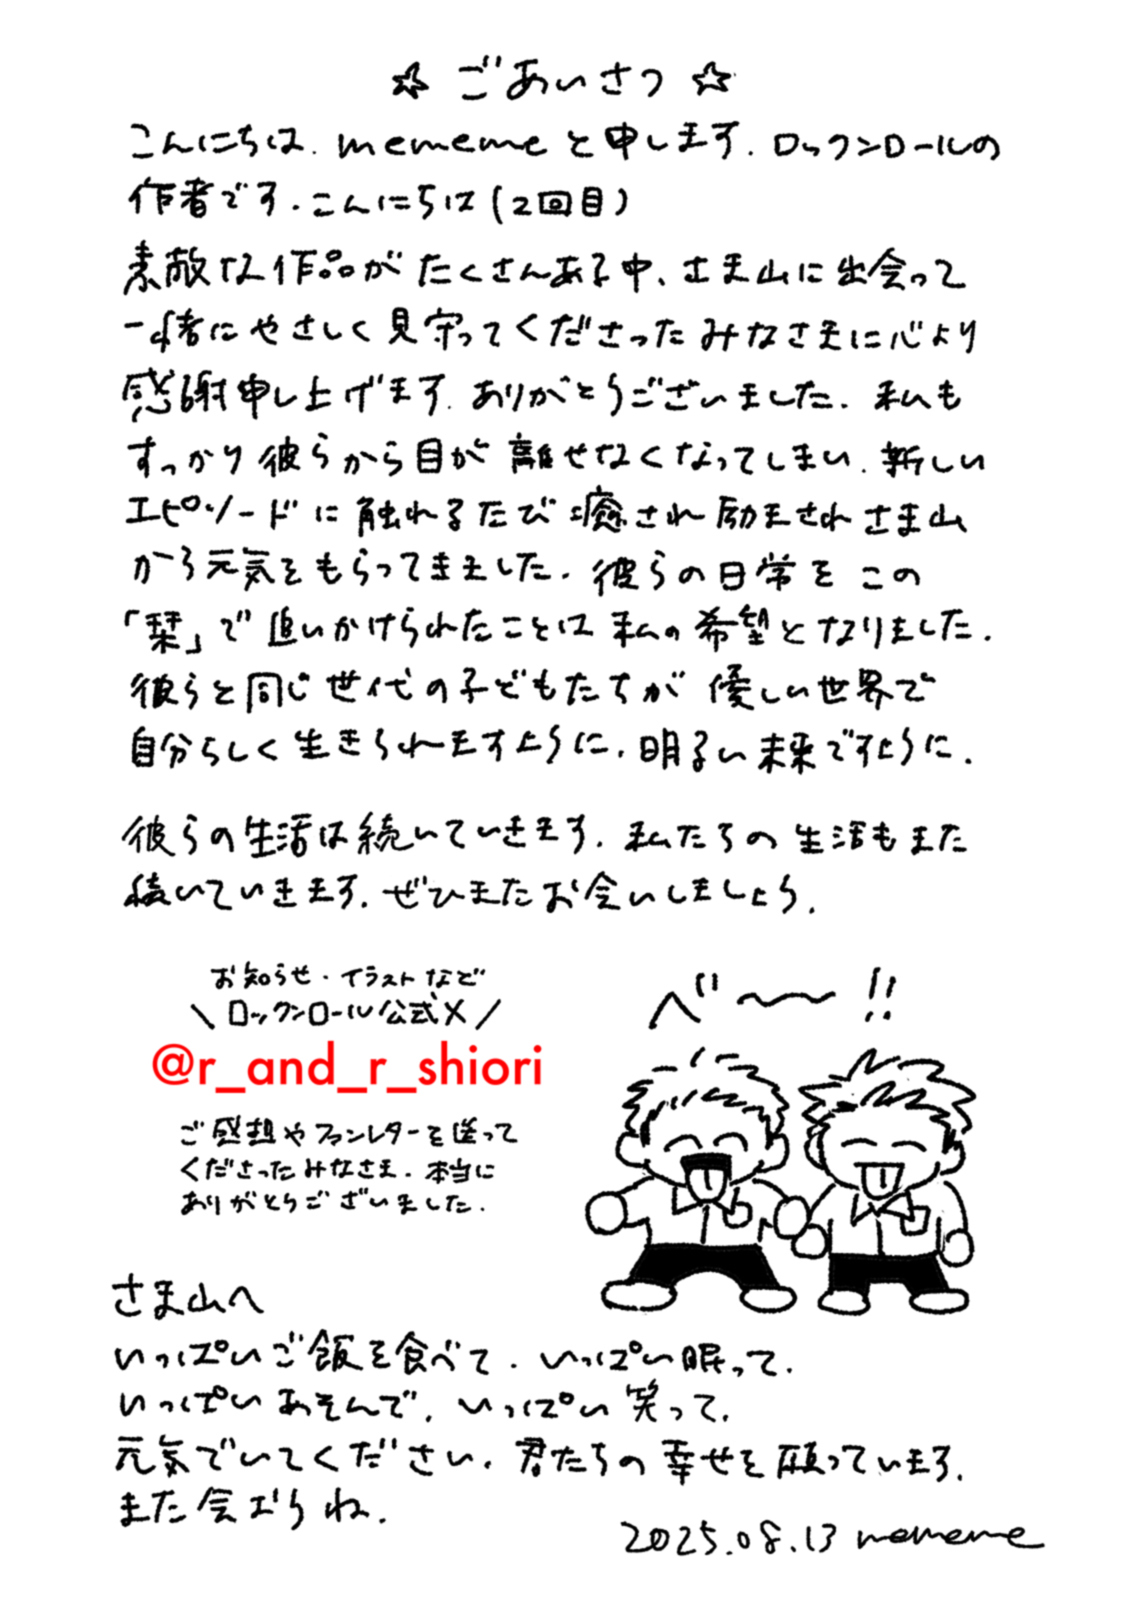 ☆ ごあいさつ ☆
こんにちは. mememe と申します. ロックンロールの
作者です. こんにちは(2回目)
素敵な作品がたくさんある中、さま山に出会って
一緒にやさしく見守ってくださったみなさまに心より
感謝申し上げます. ありがとうございました. 私も
すっかり彼らから目が離せなくなってしまい. 新しい
エピソードに触れるたび癒され励まされさま山
から元気をもらってきました. 彼らの日常をこの
「栞」で追いかけられたことは私の希望となりました.
彼らと同じ世代の子どもたちが優しい世界で
自分らしく生きられますように. 明るい未来ですように.
彼らの生活は続いていきます. 私たちの生活もまた
続いていきます. ぜひまたお会いしましょう.
お知らせ・イラストなど
\ ロックンロール公式X /
@r_and_r_shiori
ご感想やファンレターを送って
くださったみなさま. 本当に
ありがとうございました.
べ〜〜!!
さま山へ
いっぱいご飯を食べて. いっぱい眠って.
いっぱいあそんで. いっぱい笑って.
元気でいてください. 君たちの幸せを願っています.
また会おうね.
2025.08.13 mememe